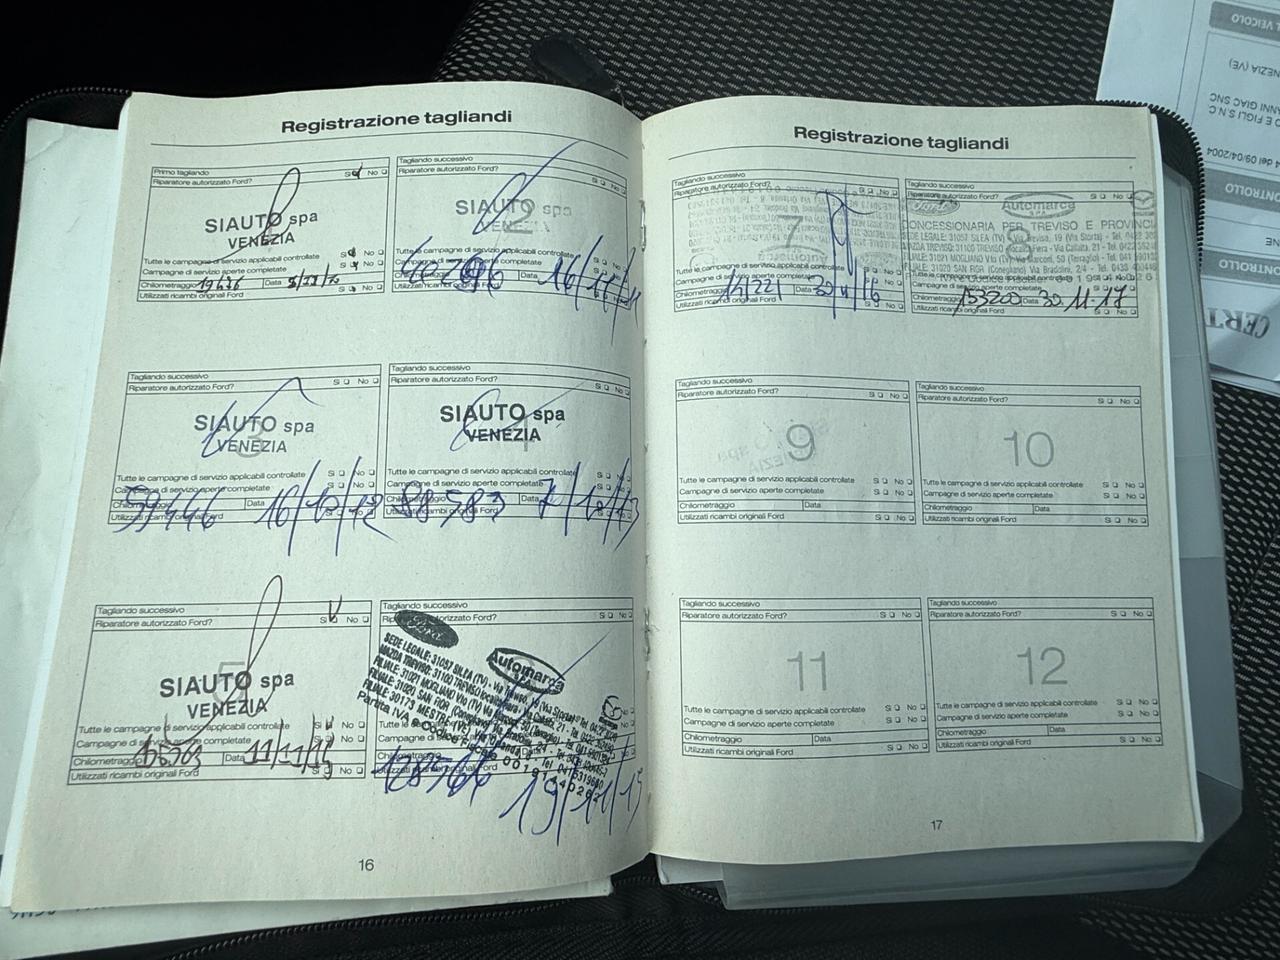 Registrazione tagliandi
Primo tagliando
Riparatore autorizzato Ford? Sì No
SIAUTO spa
VENEZIA
Tutte le campagne di servizio applicabili controllate Sì No
Campagne di servizio aperte completate Sì No
Chilometraggio 19426 Data
Utilizzati ricambi originali Ford Sì No
Tagliando successivo
Riparatore autorizzato Ford? Sì No
2
SIAUTO spa
VENEZIA
Tutte le campagne di servizio applicabili controllate Sì No
Campagne di servizio aperte completate
Chilometraggio Data 16/11/11
Utilizzati ricambi originali Ford
Tagliando successivo
Riparatore autorizzato Ford? Sì No
3
SIAUTO spa
VENEZIA
Tutte le campagne di servizio applicabili controllate Sì No
Campagne di servizio aperte completate Sì No
Chilometraggio 59446 Data 16/10/12
Utilizzati ricambi originali Ford
Tagliando successivo
Riparatore autorizzato Ford? Sì No
4
SIAUTO spa
VENEZIA
Tutte le campagne di servizio applicabili controllate Sì No
Campagne di servizio aperte completate Sì No
Chilometraggio 88583 Data 7/10/13
Utilizzati ricambi originali Ford
Tagliando successivo
Riparatore autorizzato Ford? Sì No
5
SIAUTO spa
VENEZIA
Tutte le campagne di servizio applicabili controllate Sì No
Campagne di servizio aperte completate Sì No
Chilometraggio Data 11/11/14
Utilizzati ricambi originali Ford Sì No
Tagliando successivo
autorizzato Ford? Sì No
Ford
Automarca
SEDE LEGALE: 31057 SILEA (TV) - Via Treviso, 19 (Via Storta)
MAZDA TREVISO: 31100 TREVISO
FILIALE: 31021 MOGLIANO V.to (TV)
FILIALE: 31020 SAN FIOR (Conegliano)
FILIALE: 30173 MESTRE
Partita IVA e Codice Fiscale
128766
19/11/15
16
Registrazione tagliandi
Tagliando successivo
Riparatore autorizzato Ford? Sì No
7
Tutte le campagne di servizio applicabili controllate Sì No
Campagne di servizio aperte completate Sì No
Chilometraggio 141221 Data 30/11/16
Utilizzati ricambi originali Ford Sì No
Tagliando successivo
Riparatore autorizzato Ford? Sì No
8
Ford Automarca SPA
CONCESSIONARIA PER TREVISO E PROVINCIA
SEDE LEGALE: 31057 SILEA (TV) - Via Treviso, 19 (Via Storta) - Tel.
MAZDA TREVISO: 31100 TREVISO - Via Callalta, 21 - Tel.
FILIALE: 31021 MOGLIANO V.to (TV) - Via Marconi, 50 (Terraglio) - Tel.
FILIALE: 31020 SAN FIOR (Conegliano) Via Bradolini, 2/4 - Tel.
Chilometraggio 153200 Data 30 11-17
Utilizzati ricambi originali Ford Sì No
Tagliando successivo
Riparatore autorizzato Ford? Sì No
9
Tutte le campagne di servizio applicabili controllate Sì No
Campagne di servizio aperte completate Sì No
Chilometraggio Data
Utilizzati ricambi originali Ford Sì No
Tagliando successivo
Riparatore autorizzato Ford? Sì No
10
Tutte le campagne di servizio applicabili controllate Sì No
Campagne di servizio aperte completate Sì No
Chilometraggio Data
Utilizzati ricambi originali Ford Sì No
Tagliando successivo
Riparatore autorizzato Ford? Sì No
11
Tutte le campagne di servizio applicabili controllate Sì No
Campagne di servizio aperte completate Sì No
Chilometraggio Data
Utilizzati ricambi originali Ford Sì No
Tagliando successivo
Riparatore autorizzato Ford? Sì No
12
Tutte le campagne di servizio applicabili controllate Sì No
Campagne di servizio aperte completate Sì No
Chilometraggio Data
Utilizzati ricambi originali Ford Sì No
17
VEICOLO
VENEZIA (VE)
ANNI GIAC SNC
O E FIGLI S.N.C.
del 09/04/2004
CONTROLLO
NE
CONTROLLO
CERT